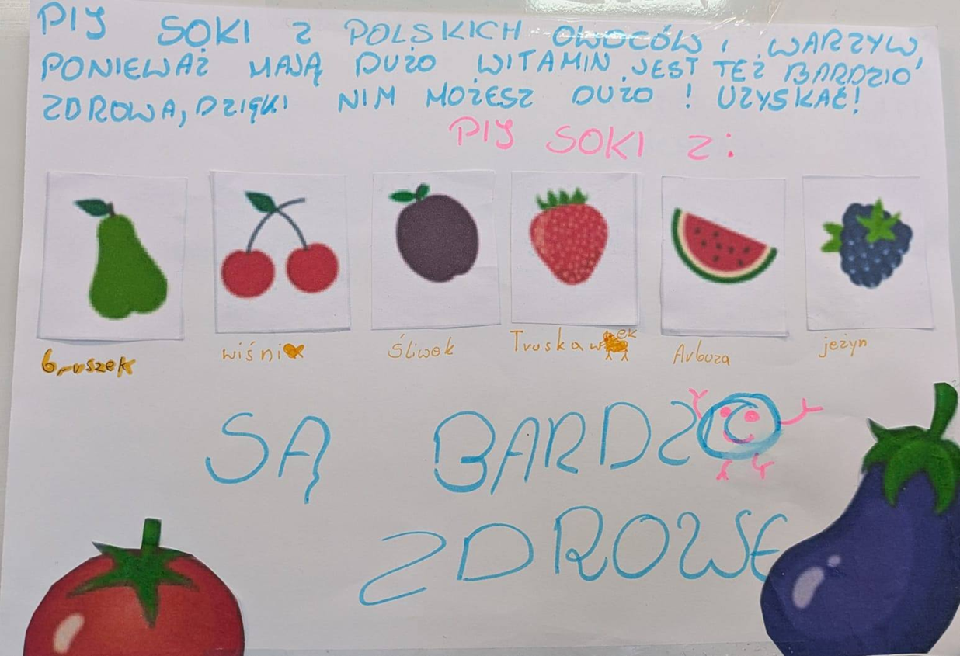 PIJ SOKI Z POLSKICH OWOCÓW I WARZYW,
PONIEWAŻ MAJĄ DUŻO WITAMIN, JEST TEŻ BARDZIO
ZDROWA, DZIĘKI NIM MOŻESZ DUŻO ! UZYSKAĆ!
PIJ SOKI Z:
Gruszek wiśni Śliwek Truskawek Arbuza jeżyn
SĄ BARDZO
ZDROWE